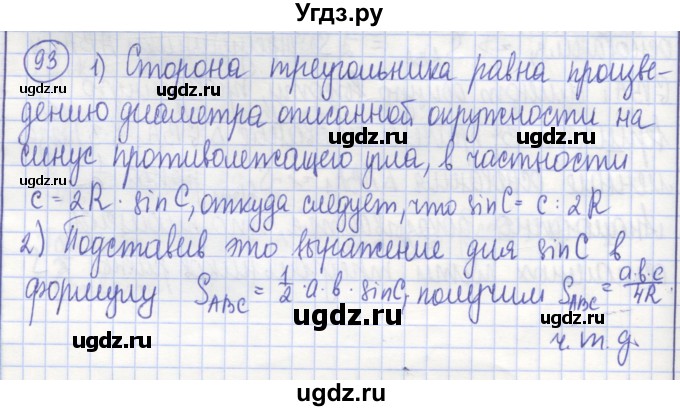 Угдз.ру
93 1) Сторона треугольника равна произве-
дению диаметра описанной окружности на
синус противолежащего угла, в частности
c = 2R · sinC, откуда следует, что sinC = c : 2R
2) Подставив это выражение для sinC в
формулу S_ABC = 1/2 · a · b · sinC, получим S_ABC = a·b·c/4R.
ч.т.д.
ugdz.ru ugdz.ru ugdz.ru
ugdz.ru ugdz.ru ugdz.ru
ugdz.ru ugdz.ru ugdz.ru
ugdz.ru ugdz.ru ugdz.ru
ugdz.ru ugdz.ru ugdz.ru